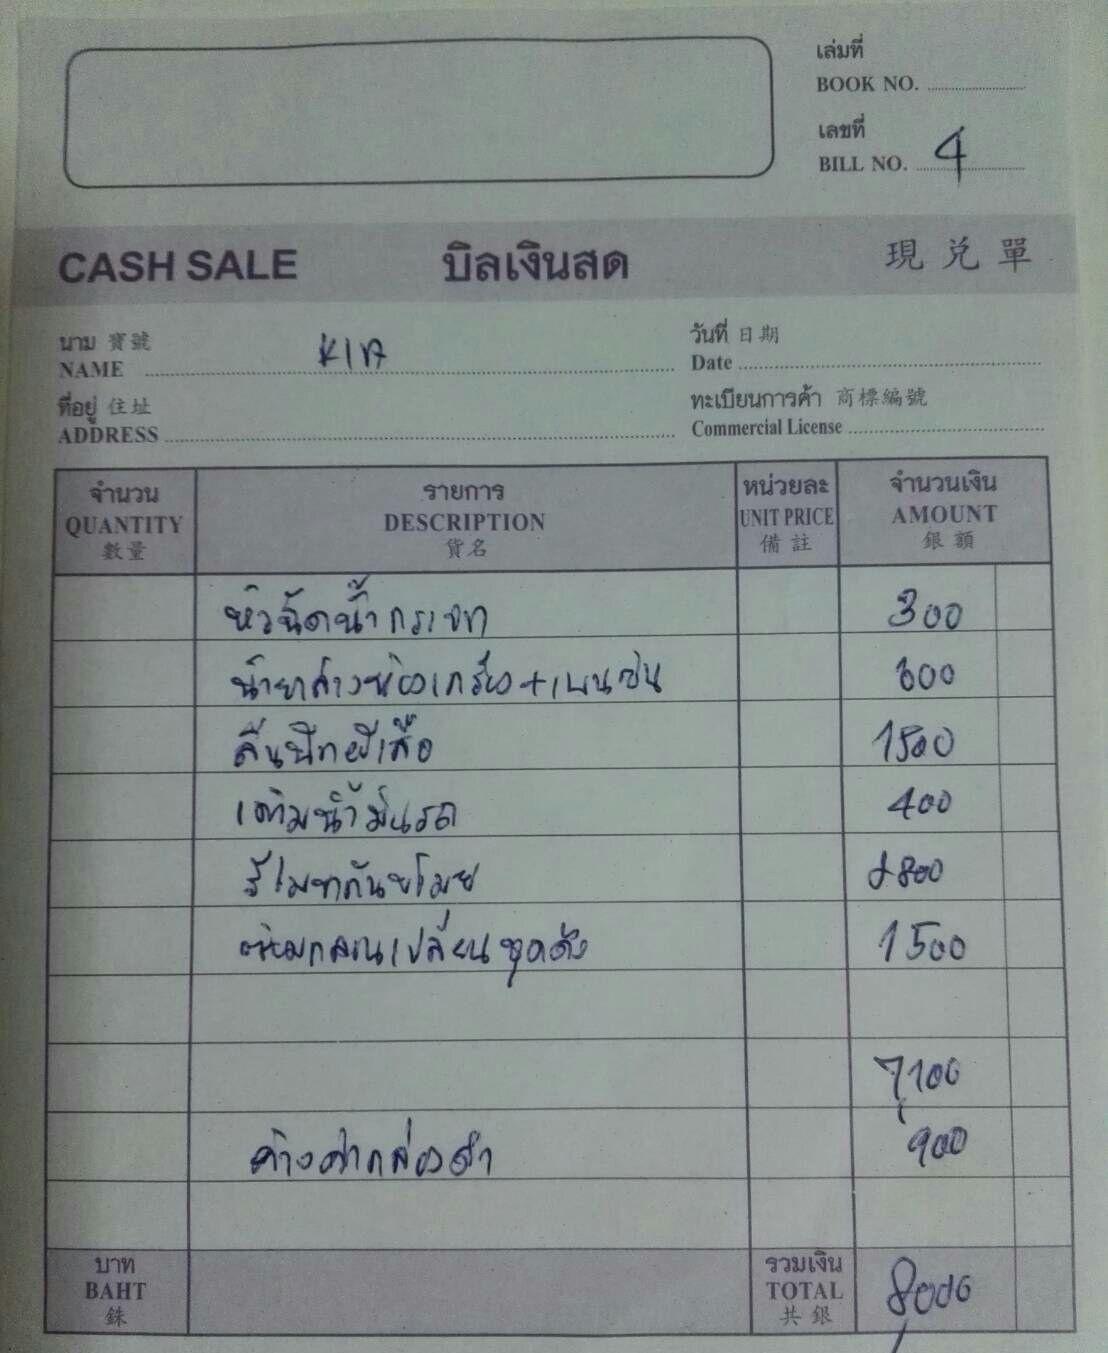 เล่มที่
BOOK NO.
เลขที่
BILL NO. 4
CASH SALE บิลเงินสด 現兌單
นาม 寶號
NAME KIA
วันที่ 日期
Date
ที่อยู่ 住址
ADDRESS
ทะเบียนการค้า 商標編號
Commercial License
จำนวน รายการ หน่วยละ จำนวนเงิน
QUANTITY DESCRIPTION UNIT PRICE AMOUNT
數量 貨名 備註 銀額
หัวฉีดน้ำกระจก 300
น้ำยาล้างห้องเครื่อง+เบนซิน 600
ลิ้นปีกผีเสื้อ 1500
เติมน้ำมันรถ 400
รีโมทกันขโมย 2800
เปลี่ยนชุดดัง 1500
7,100
ค้างค่ากล่องดำ 900
บาท รวมเงิน
BAHT TOTAL 8,000
銖 共銀